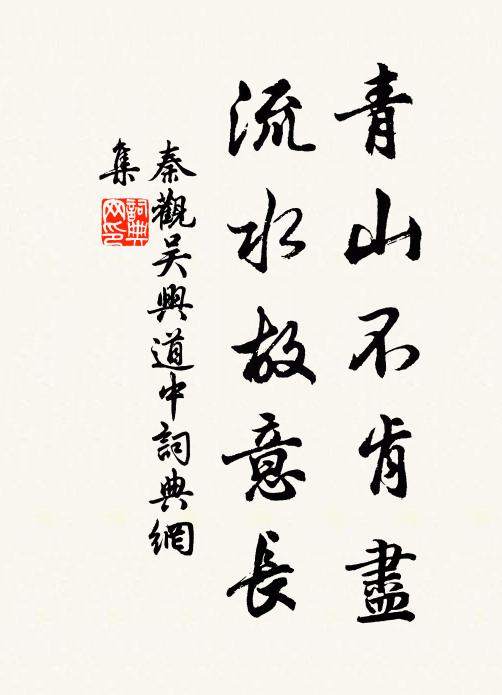 青山不肯盡
流水故意長
秦觀吳興道中詞典網
集
詞典網印